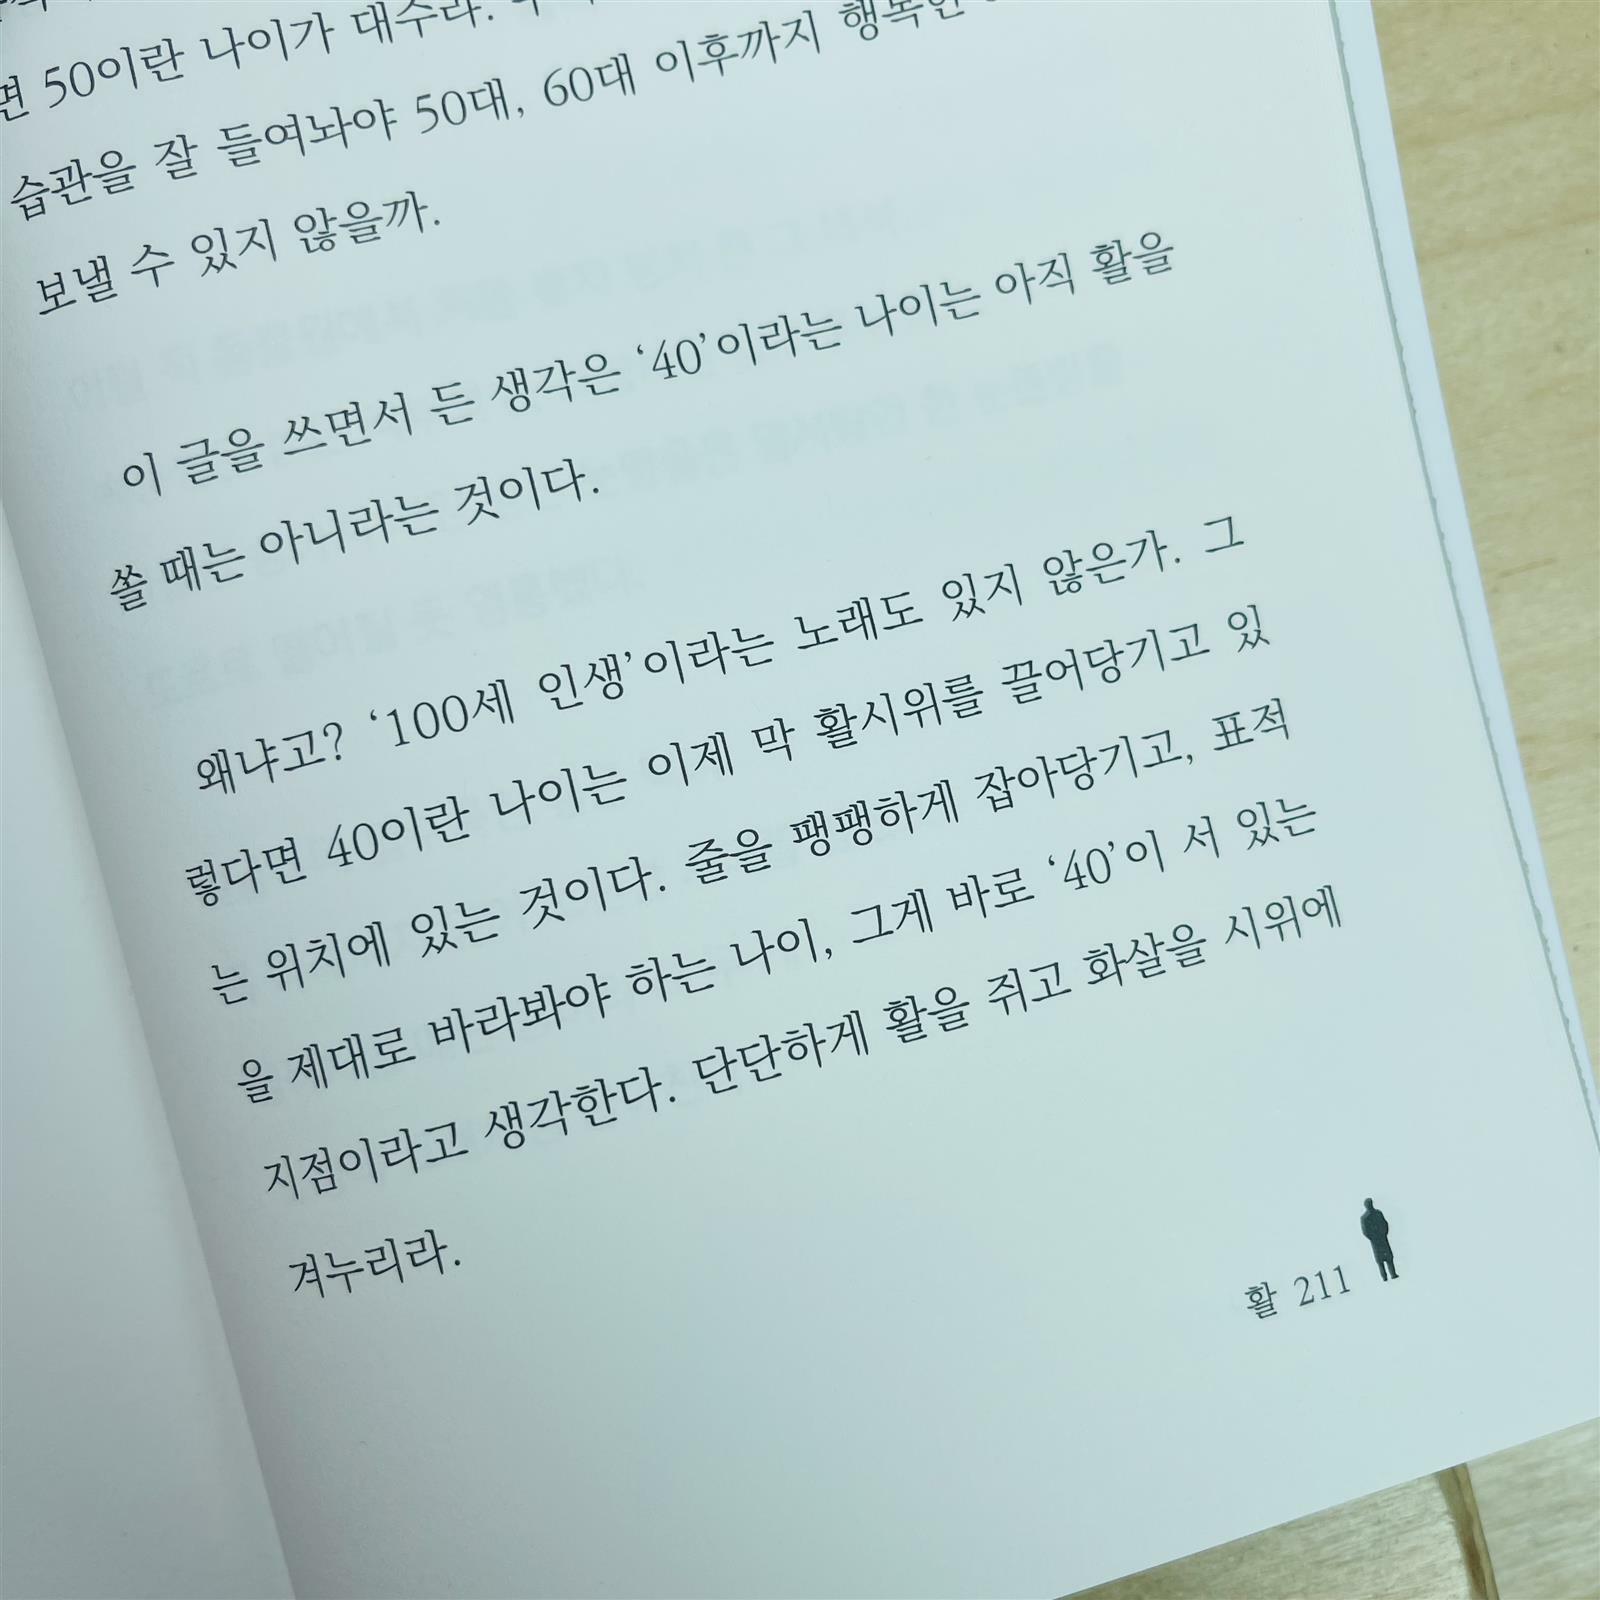 면 50이란 나이가 대수라.
습관을 잘 들여놔야 50대, 60대 이후까지 행복한
보낼 수 있지 않을까.
이 글을 쓰면서 든 생각은 ‘40’이라는 나이는 아직 활을
쏠 때는 아니라는 것이다.
왜냐고? ‘100세 인생’이라는 노래도 있지 않은가. 그
렇다면 40이란 나이는 이제 막 활시위를 끌어당기고 있
는 위치에 있는 것이다. 줄을 팽팽하게 잡아당기고, 표적
을 제대로 바라봐야 하는 나이, 그게 바로 ‘40’이 서 있는
지점이라고 생각한다. 단단하게 활을 쥐고 화살을 시위에
겨누리라.
활 211